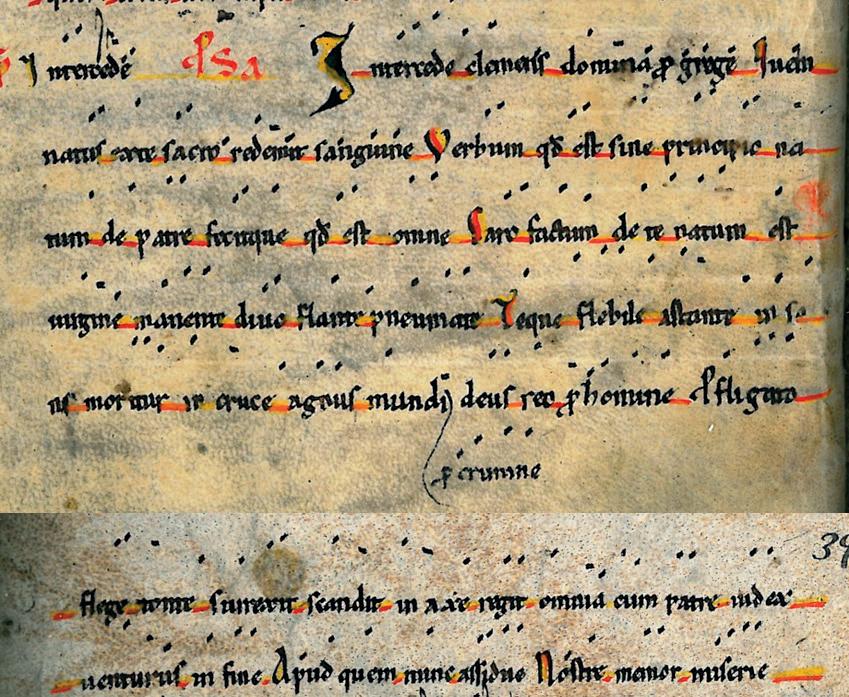 Intercede PSa Intercede clemens domina p grege Quem
natus ex te sacro redemit sanguine Verbum qd est sine principio na
tum de patre fecitque qd est omne Caro factum de te natum est
uirgine manente diuo flante pneumate Teque flebile astante in so
ns moritur in cruce agnus mundi deus reo p homine Pfligato
p crimine
flege tonte surrexit scandit in axe regit omnia cum patre iudex
uenturus in fine Apud quem nunc assiduo Nostre memor miserie
39